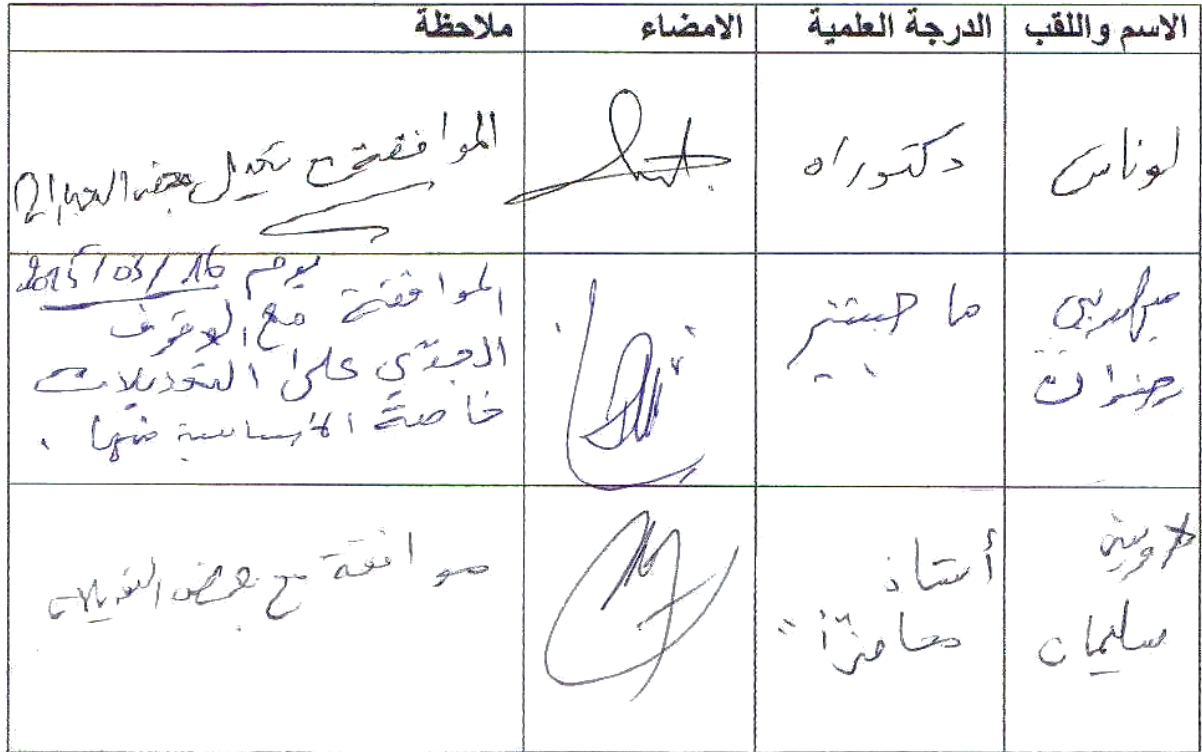 الاسم واللقب الدرجة العلمية الامضاء ملاحظة
لوناس دكتوراه الموافقة مع تعديل بعض العبارات
رضوان ماجستير
يوم 16/03/2015
الموافقة مع الوقوف
الجدّي على التعديلات
خاصة الأساسية منها.
سليمان
أستاذ
محاضر أ
موافقة مع بعض التعديلات